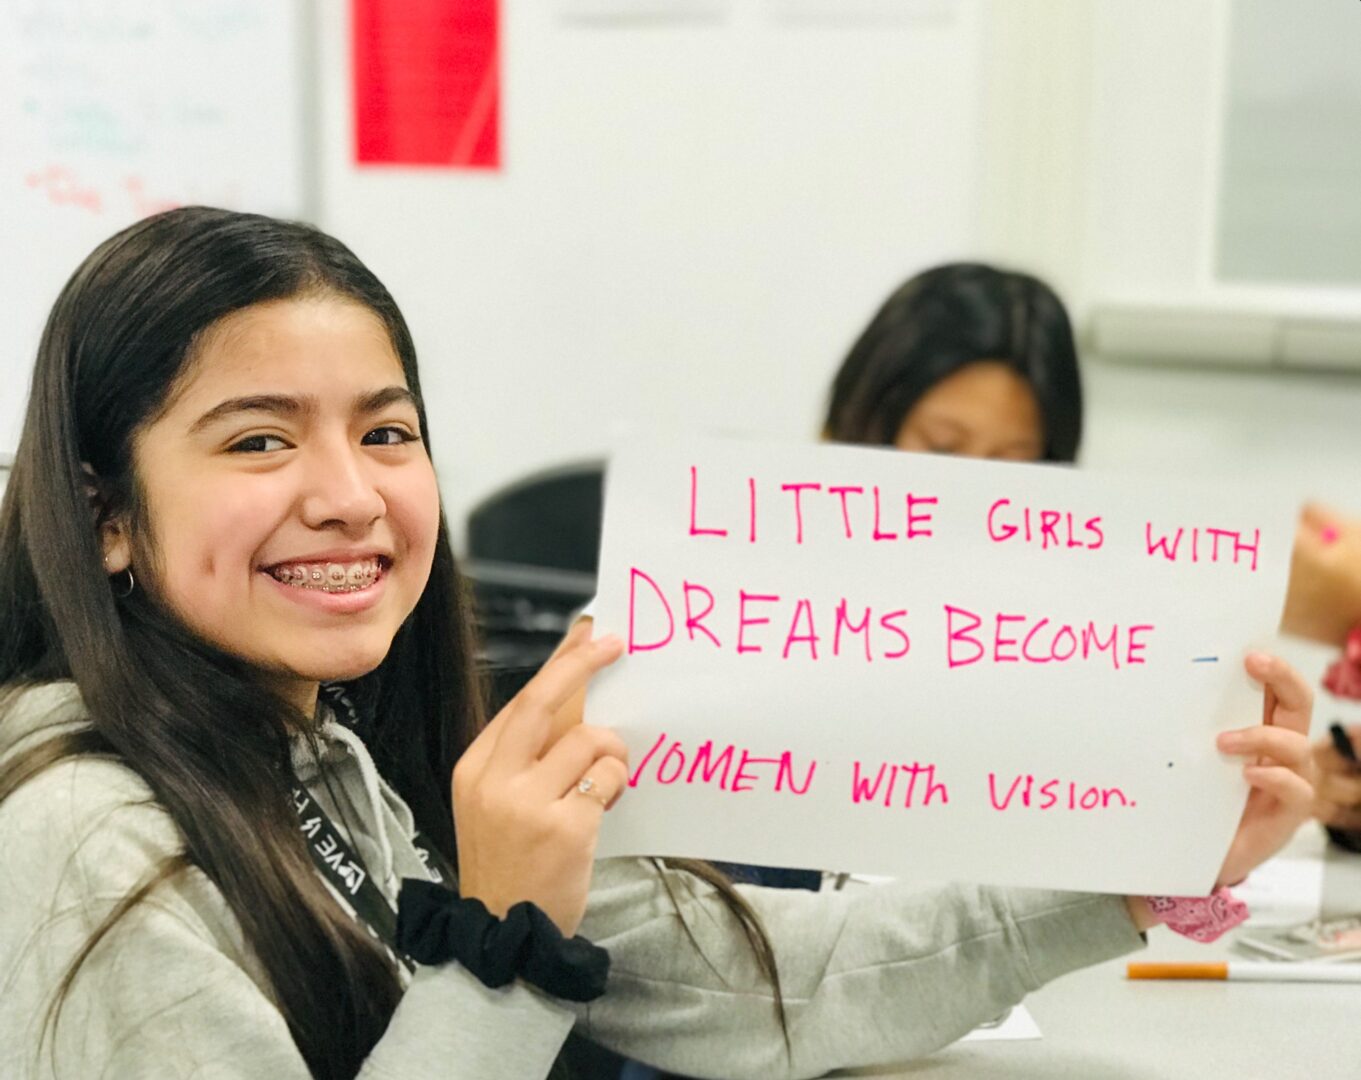 LITTLE GIRLS WITH
DREAMS BECOME -
WOMEN WITh VISIon.